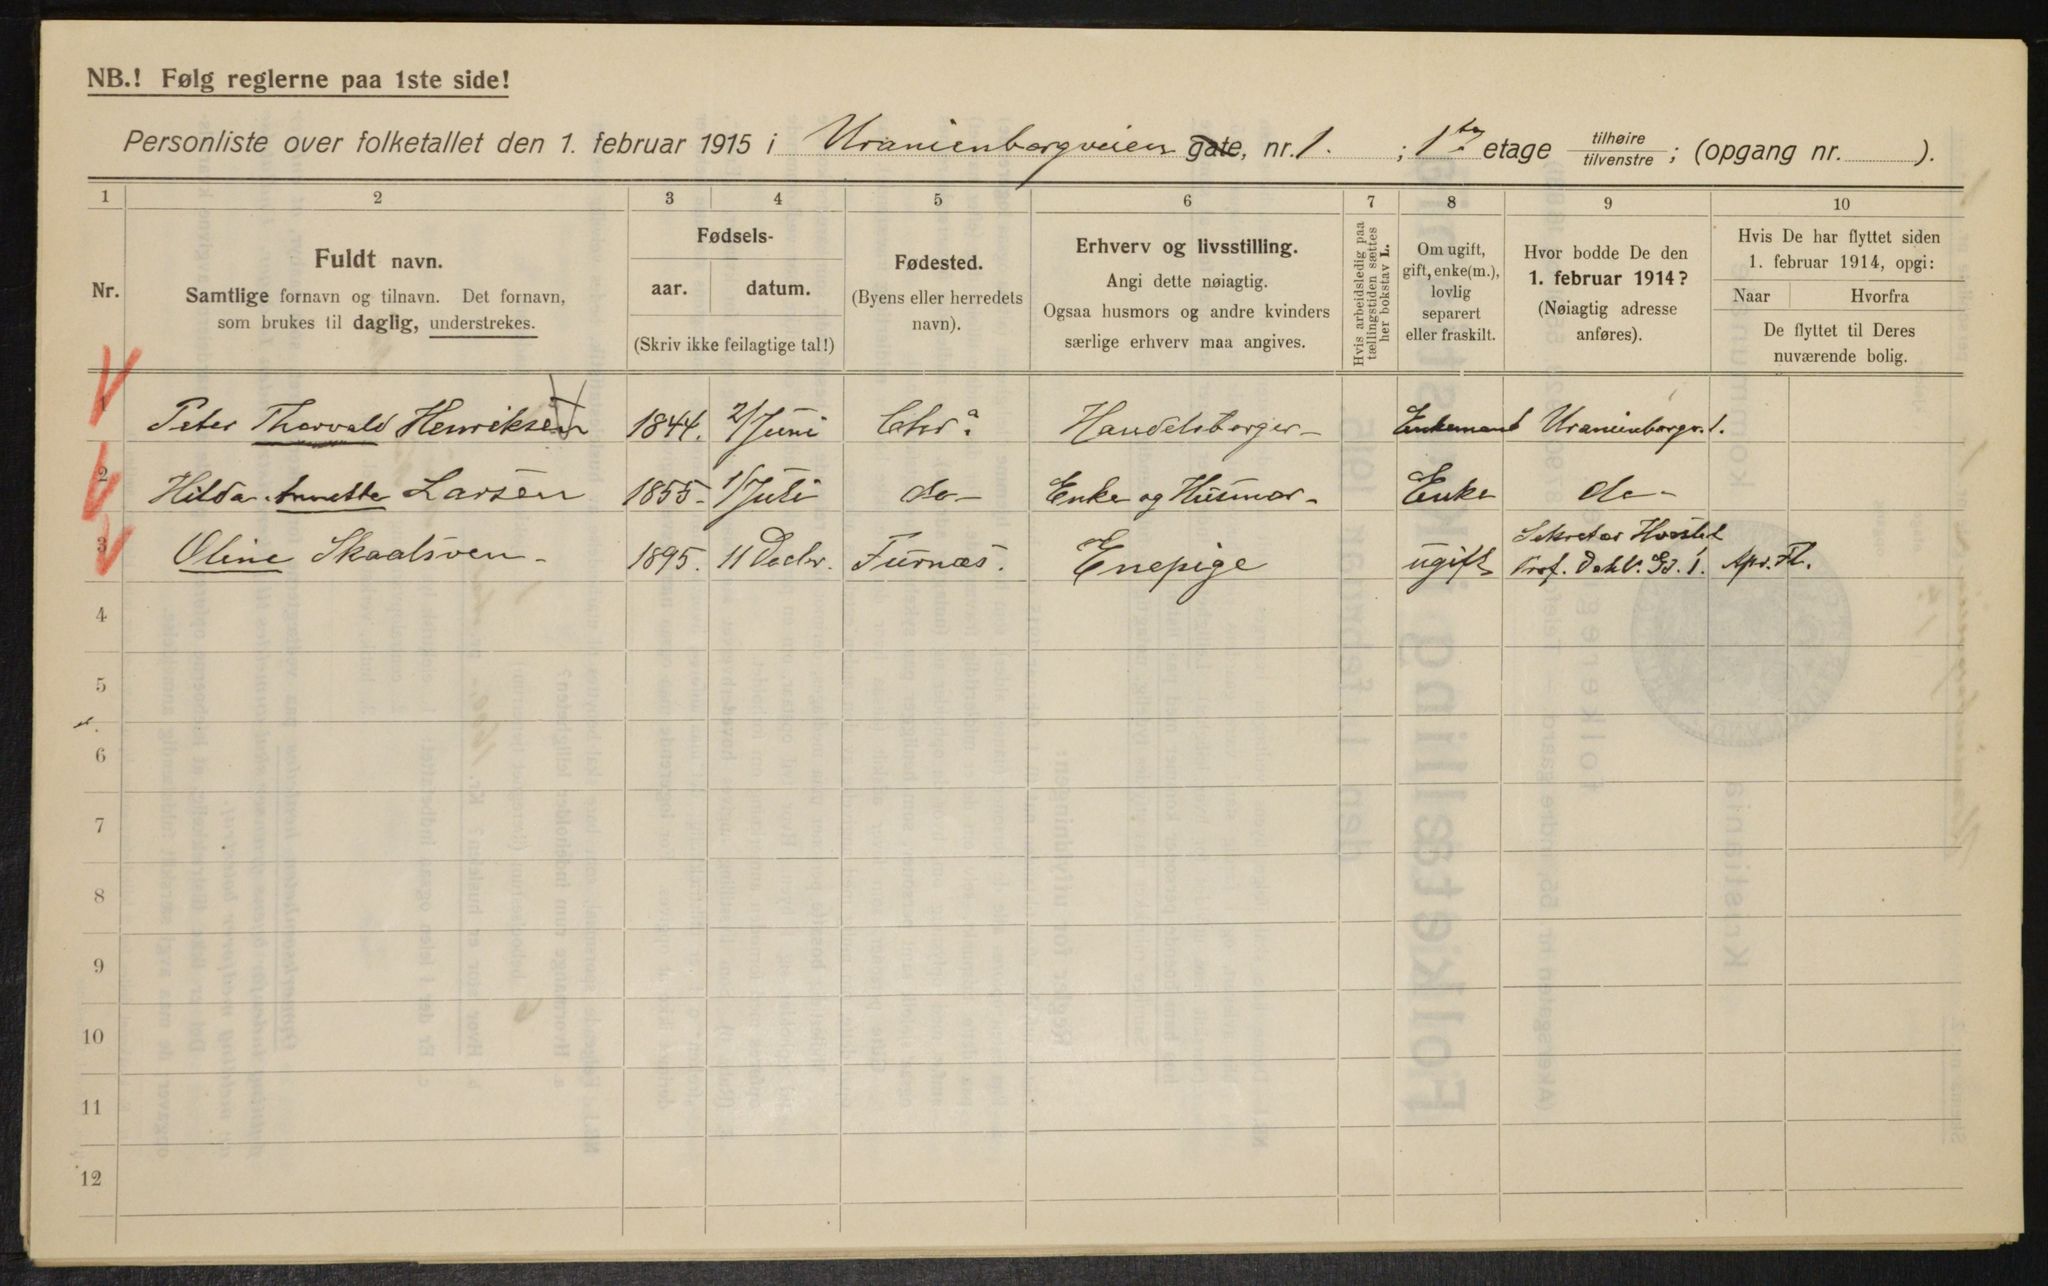 NB.! Følg reglerne paa 1ste side!
Personliste over folketallet den 1. februar 1915 i Uranienborgveien gate, nr. 1. ; 1ste etage tilhøire tilvenstre ; (opgang nr. ).
1 2 3 4 5 6 7 8 9 10
Nr.
Fuldt navn.
Samtlige fornavn og tilnavn. Det fornavn,
som brukes til daglig, understrekes.
Fødsels-
aar. datum.
(Skriv ikke feilagtige tal!)
Fødested.
(Byens eller herredets
navn).
Erhverv og livsstilling.
Angi dette nøiagtig.
Ogsaa husmors og andre kvinders
særlige erhverv maa angives.
Hvis arbeidsledig paa
tællingstiden sættes
her bokstav L.
Om ugift,
gift, enke(m.),
lovlig
separert
eller fraskilt.
Hvor bodde De den
1. februar 1914?
(Nøiagtig adresse
anføres).
Hvis De har flyttet siden
1. februar 1914, opgi:
Naar Hvorfra
De flyttet til Deres
nuværende bolig.
1 Peter Thorvald Henriksen 1844. 2/Juni Chra. Handelsborger- Enkemand Uranienborgv. 1.
2 Hilda Annette Larsen 1855- 1/Juli do- Enke og Husmor- Enke do-
3 Oline Skaalsveen- 1895. 11 Decbr. Furnæs. Enepige ugift Sekretær
Prof. Dahls. Gd. 1. Apr. Fl.
4
5
6
7
8
9
10
11
12